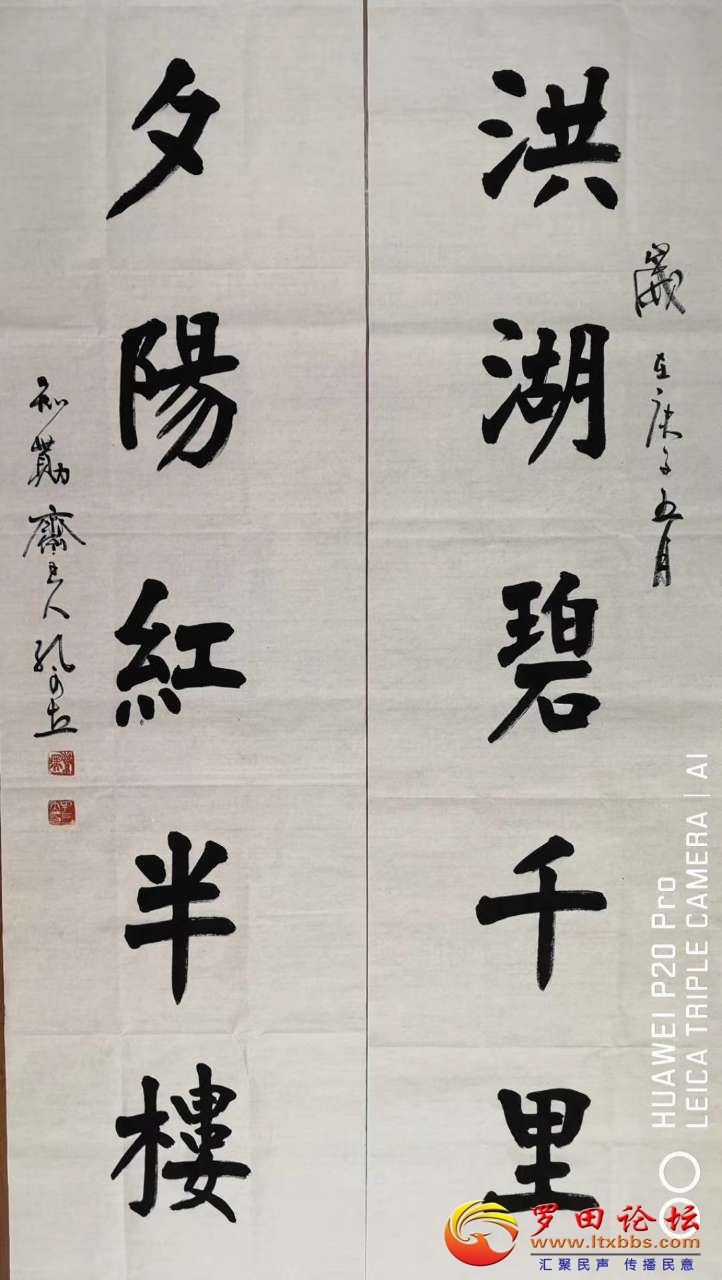 洪湖碧千里
歲在庚子五月
夕陽紅半樓
知勤齋主人
HUAWEI P20 Pro
LEICA TRIPLE CAMERA | AI
罗田论坛
www.ltxbbs.com
汇聚民声 传播民意